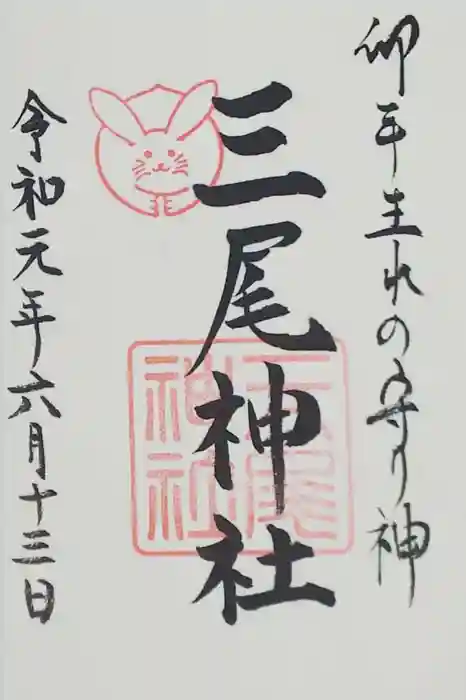 卯年生れの守り神
三尾神社
三尾神社
令和元年六月十三日